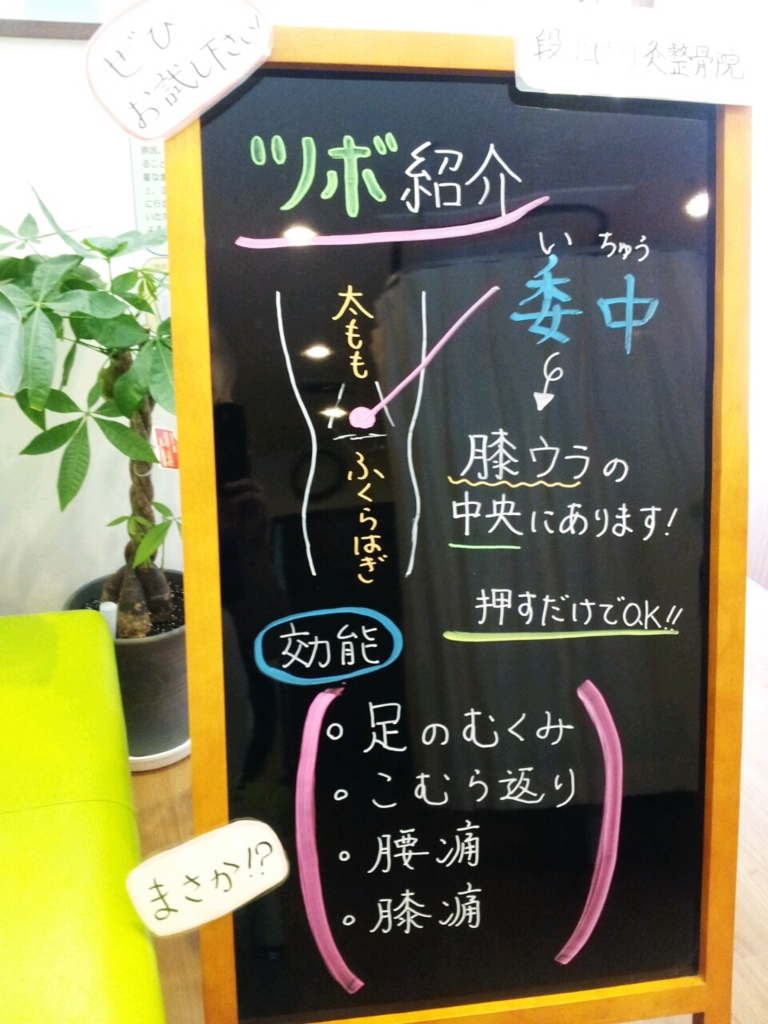 ぜひ
お試し下さい!
段上はり灸整骨院
ツボ紹介
い ちゅう
委中
太もも
膝ウラの
中央にあります!
ふくらはぎ
押すだけでOK!!
効能
足のむくみ
こむら返り
腰痛
膝痛
まさか!?